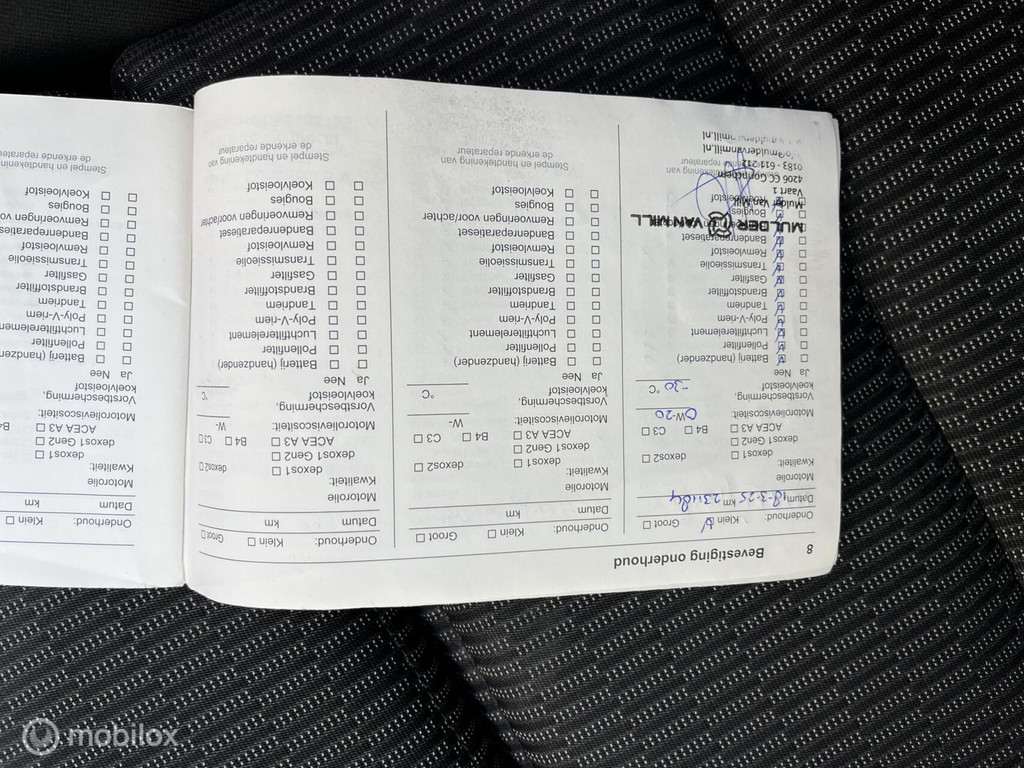 8 Bevestiging onderhoud
Onderhoud: Klein Groot
Datum 18-3-25 km
Motorolie
Kwaliteit:
dexos1 dexos2
dexos1 Gen2
ACEA A3 B4 C3
Motorolieviscositeit: 0W-20
Vorstbescherming,
koelvloeistof -30 °C
Ja Nee
Batterij (handzender)
Pollenfilter
Luchtfilterelement
Poly-V-riem
Tandriem
Brandstoffilter
Gasfilter
Transmissieolie
Remvloeistof
Bandenreparateset
MULDER VAN MILL
Bougies
Mulder Van Mill
Vaart 1
4206 CC Gorinchem
0183 - 611 212
Onderhoud: Klein Groot
Datum km
Motorolie
Kwaliteit:
dexos1 dexos2
dexos1 Gen2
ACEA A3 B4 C3
Motorolieviscositeit: W-
Vorstbescherming,
koelvloeistof °C
Ja Nee
Batterij (handzender)
Pollenfilter
Luchtfilterelement
Poly-V-riem
Tandriem
Brandstoffilter
Gasfilter
Transmissieolie
Remvloeistof
Bandenreparateset
Remvoeringen voor/achter
Bougies
Koelvloeistof
Stempel en handtekening van
de erkende reparateur
Onderhoud: Klein Groot
Datum km
Motorolie
Kwaliteit:
dexos1 dexos2
dexos1 Gen2
ACEA A3 B4 C3
Motorolieviscositeit: W-
Vorstbescherming,
koelvloeistof °C
Ja Nee
Batterij (handzender)
Pollenfilter
Luchtfilterelement
Poly-V-riem
Tandriem
Brandstoffilter
Gasfilter
Transmissieolie
Remvloeistof
Bandenreparateset
Remvoeringen voor/achter
Bougies
Koelvloeistof
Stempel en handtekening van
de erkende reparateur
Onderhoud: Klein
Datum km
Motorolie
Kwaliteit:
dexos1
dexos1 Gen2
ACEA A3 B4
Motorolieviscositeit:
Vorstbescherming,
koelvloeistof
Ja Nee
Batterij (handzen
Pollenfilter
Luchtfilterelemen
Poly-V-riem
Tandriem
Brandstoffilter
Gasfilter
Transmissieolie
Remvloeistof
Bandenreparates
Remvoeringen vo
Bougies
Koelvloeistof
Stempel en handtekening van
de erkende reparateur
mobilox